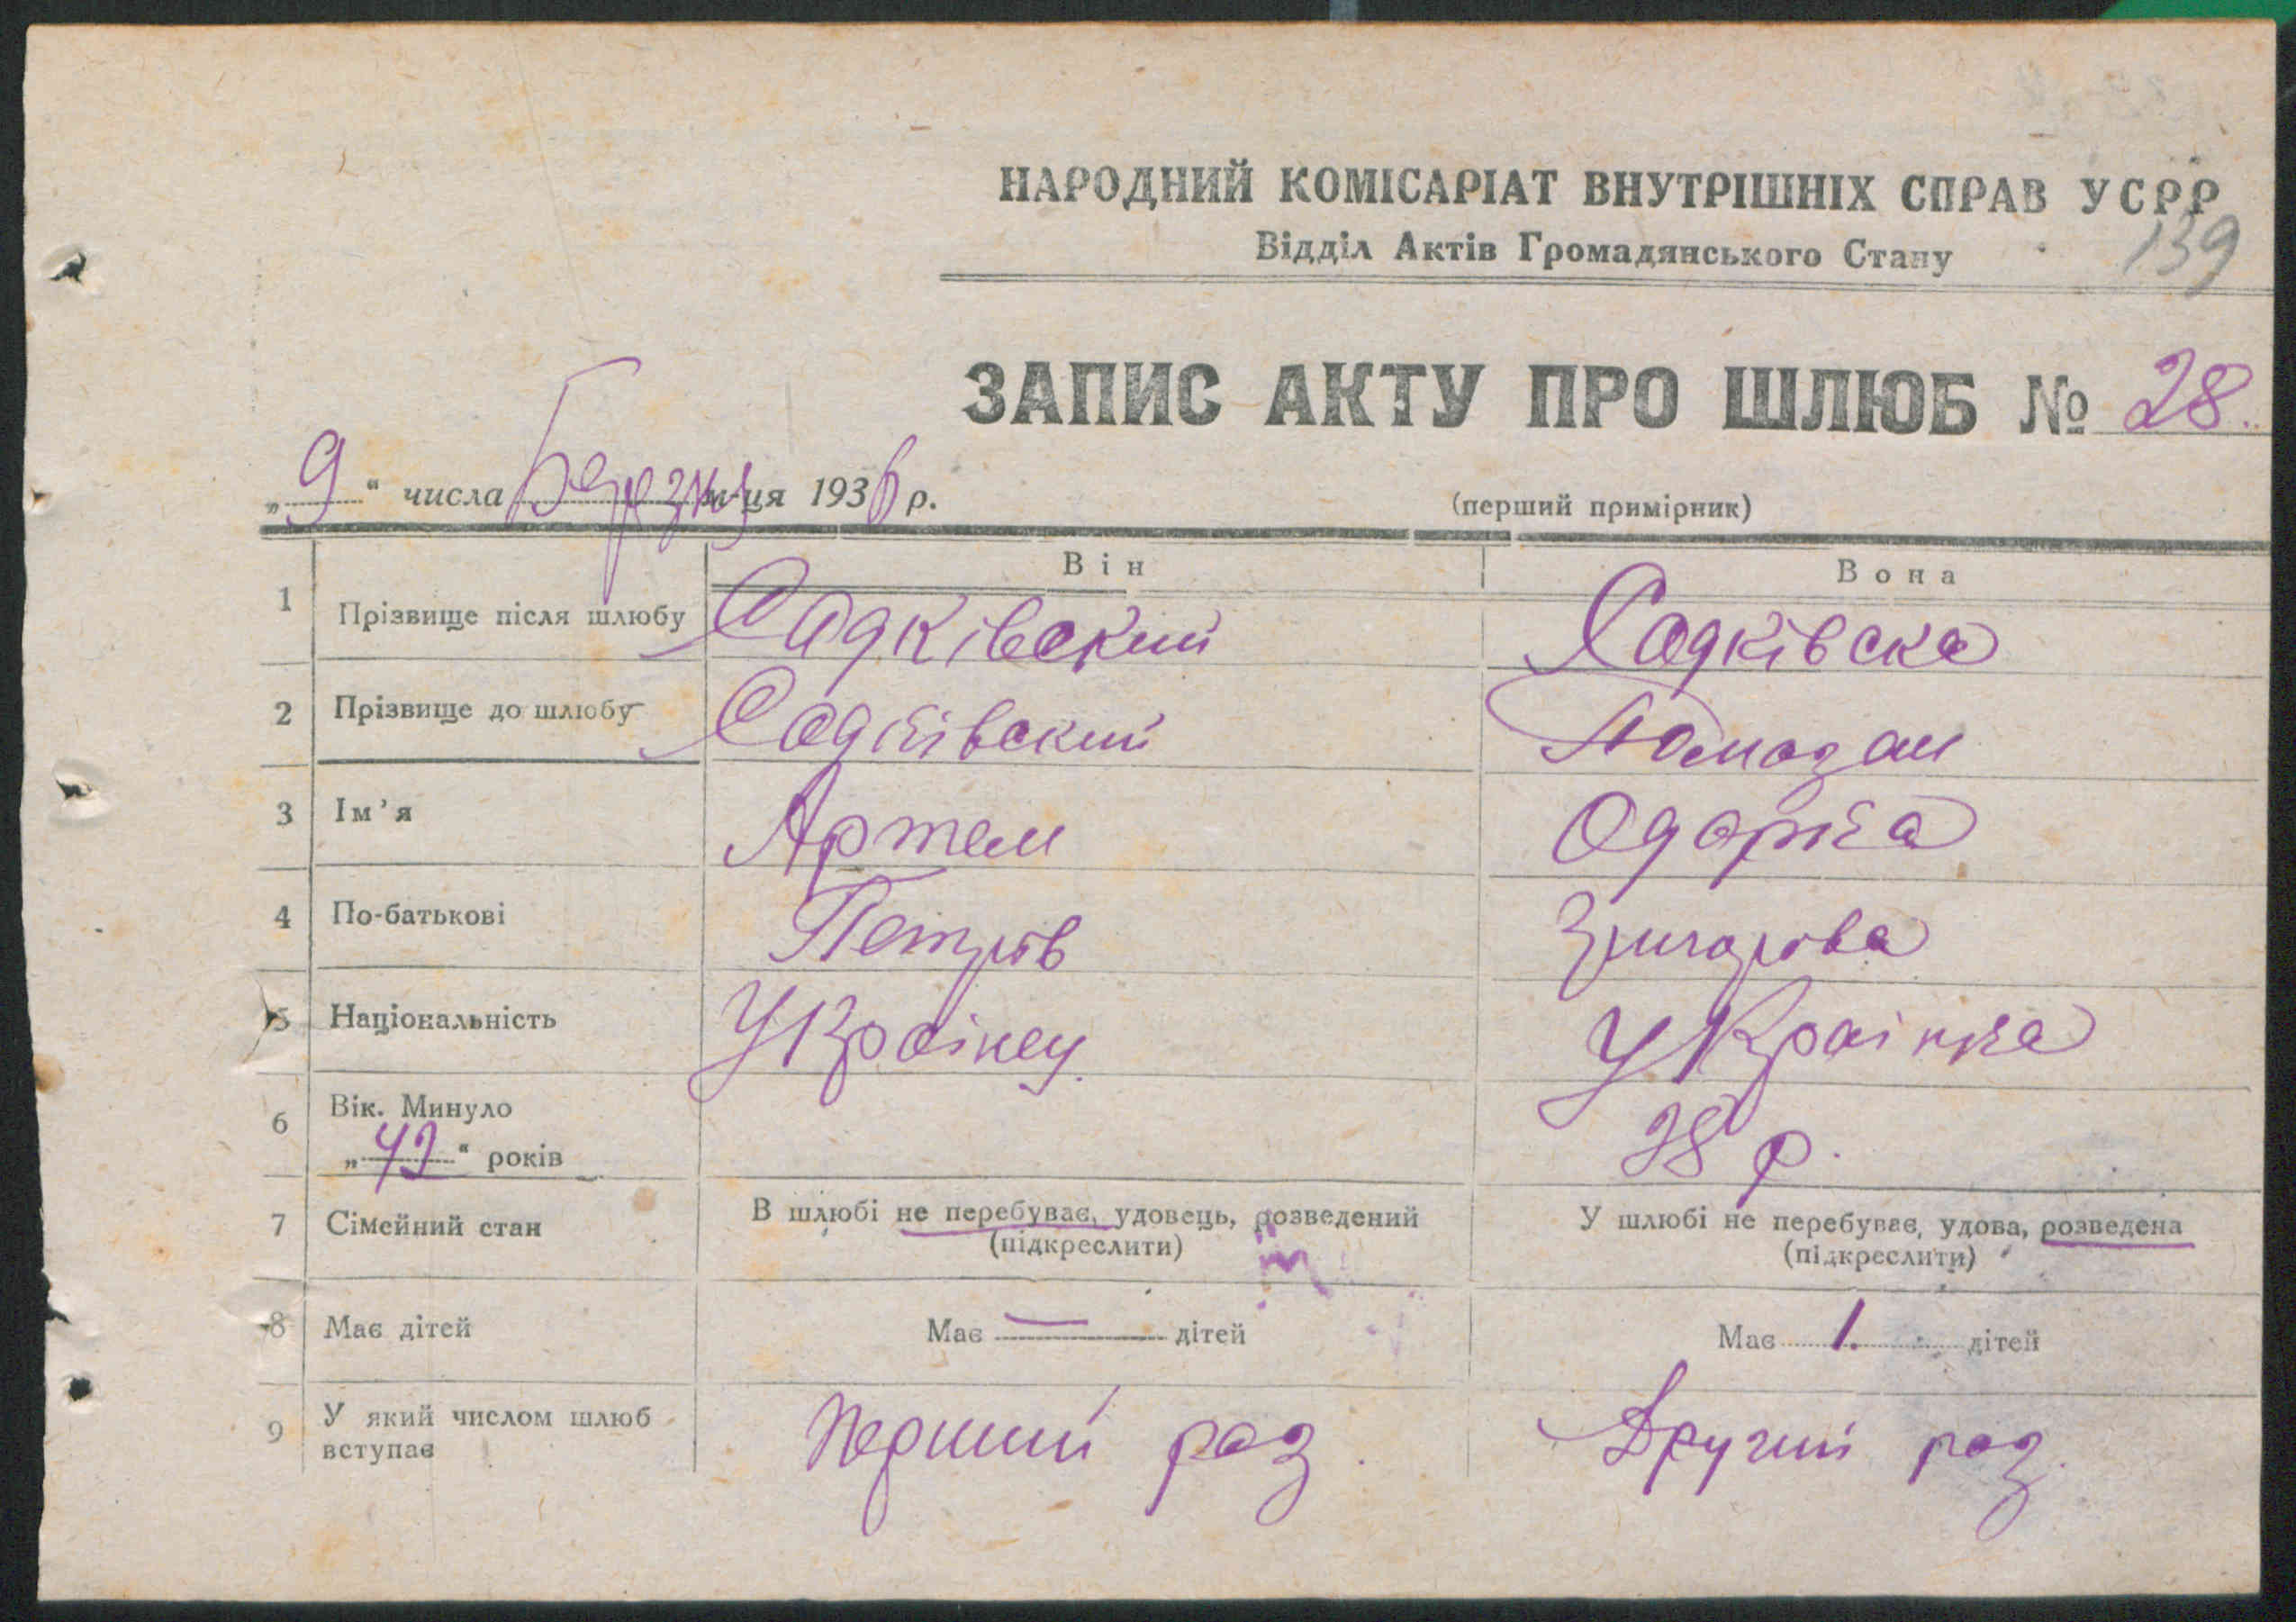 НАРОДНИЙ КОМІСАРІАТ ВНУТРІШНІХ СПРАВ УСРР
139
Відділ Актів Громадянського Стану
ЗАПИС АКТУ ПРО ШЛЮБ № 28.
„9“ числа Березня м-ця 1936 р.
(перший примірник)
Він
Вона
1 Прізвище після шлюбу Садківский Садківска
2 Прізвище до шлюбу Садківский
3 Ім'я Артем Одарка
4 По-батькові Петров Григорова
5 Національність Українец Українка
6 Вік. Минуло
„42“ років
38 р.
7 Сімейний стан В шлюбі не перебуває, удовець, розведений У шлюбі не перебуває, удова, розведена
(підкреслити) (підкреслити)
8 Має дітей Має — дітей Має 1. дітей
9 У який числом шлюб
вступає
Перший раз Другий раз.